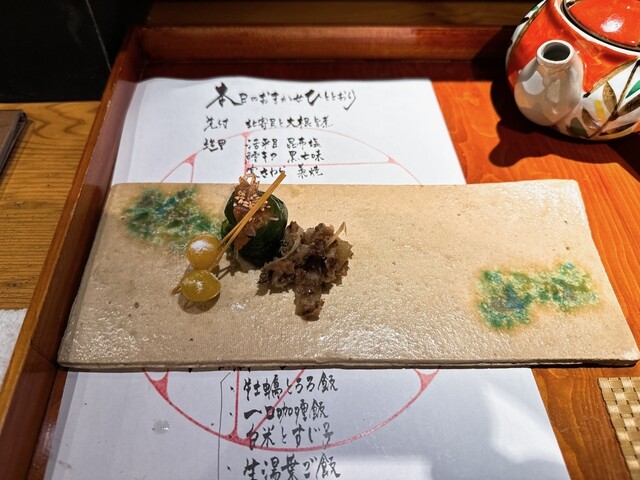 本日のおまかせひととおり
先付 北寄貝と大根
造里 活平目 昆布塩
黒七味
さわら 藁焼
・牡蠣とろろ飯
・一口咖喱飯
・白米とすじ子
・生湯葉ご飯